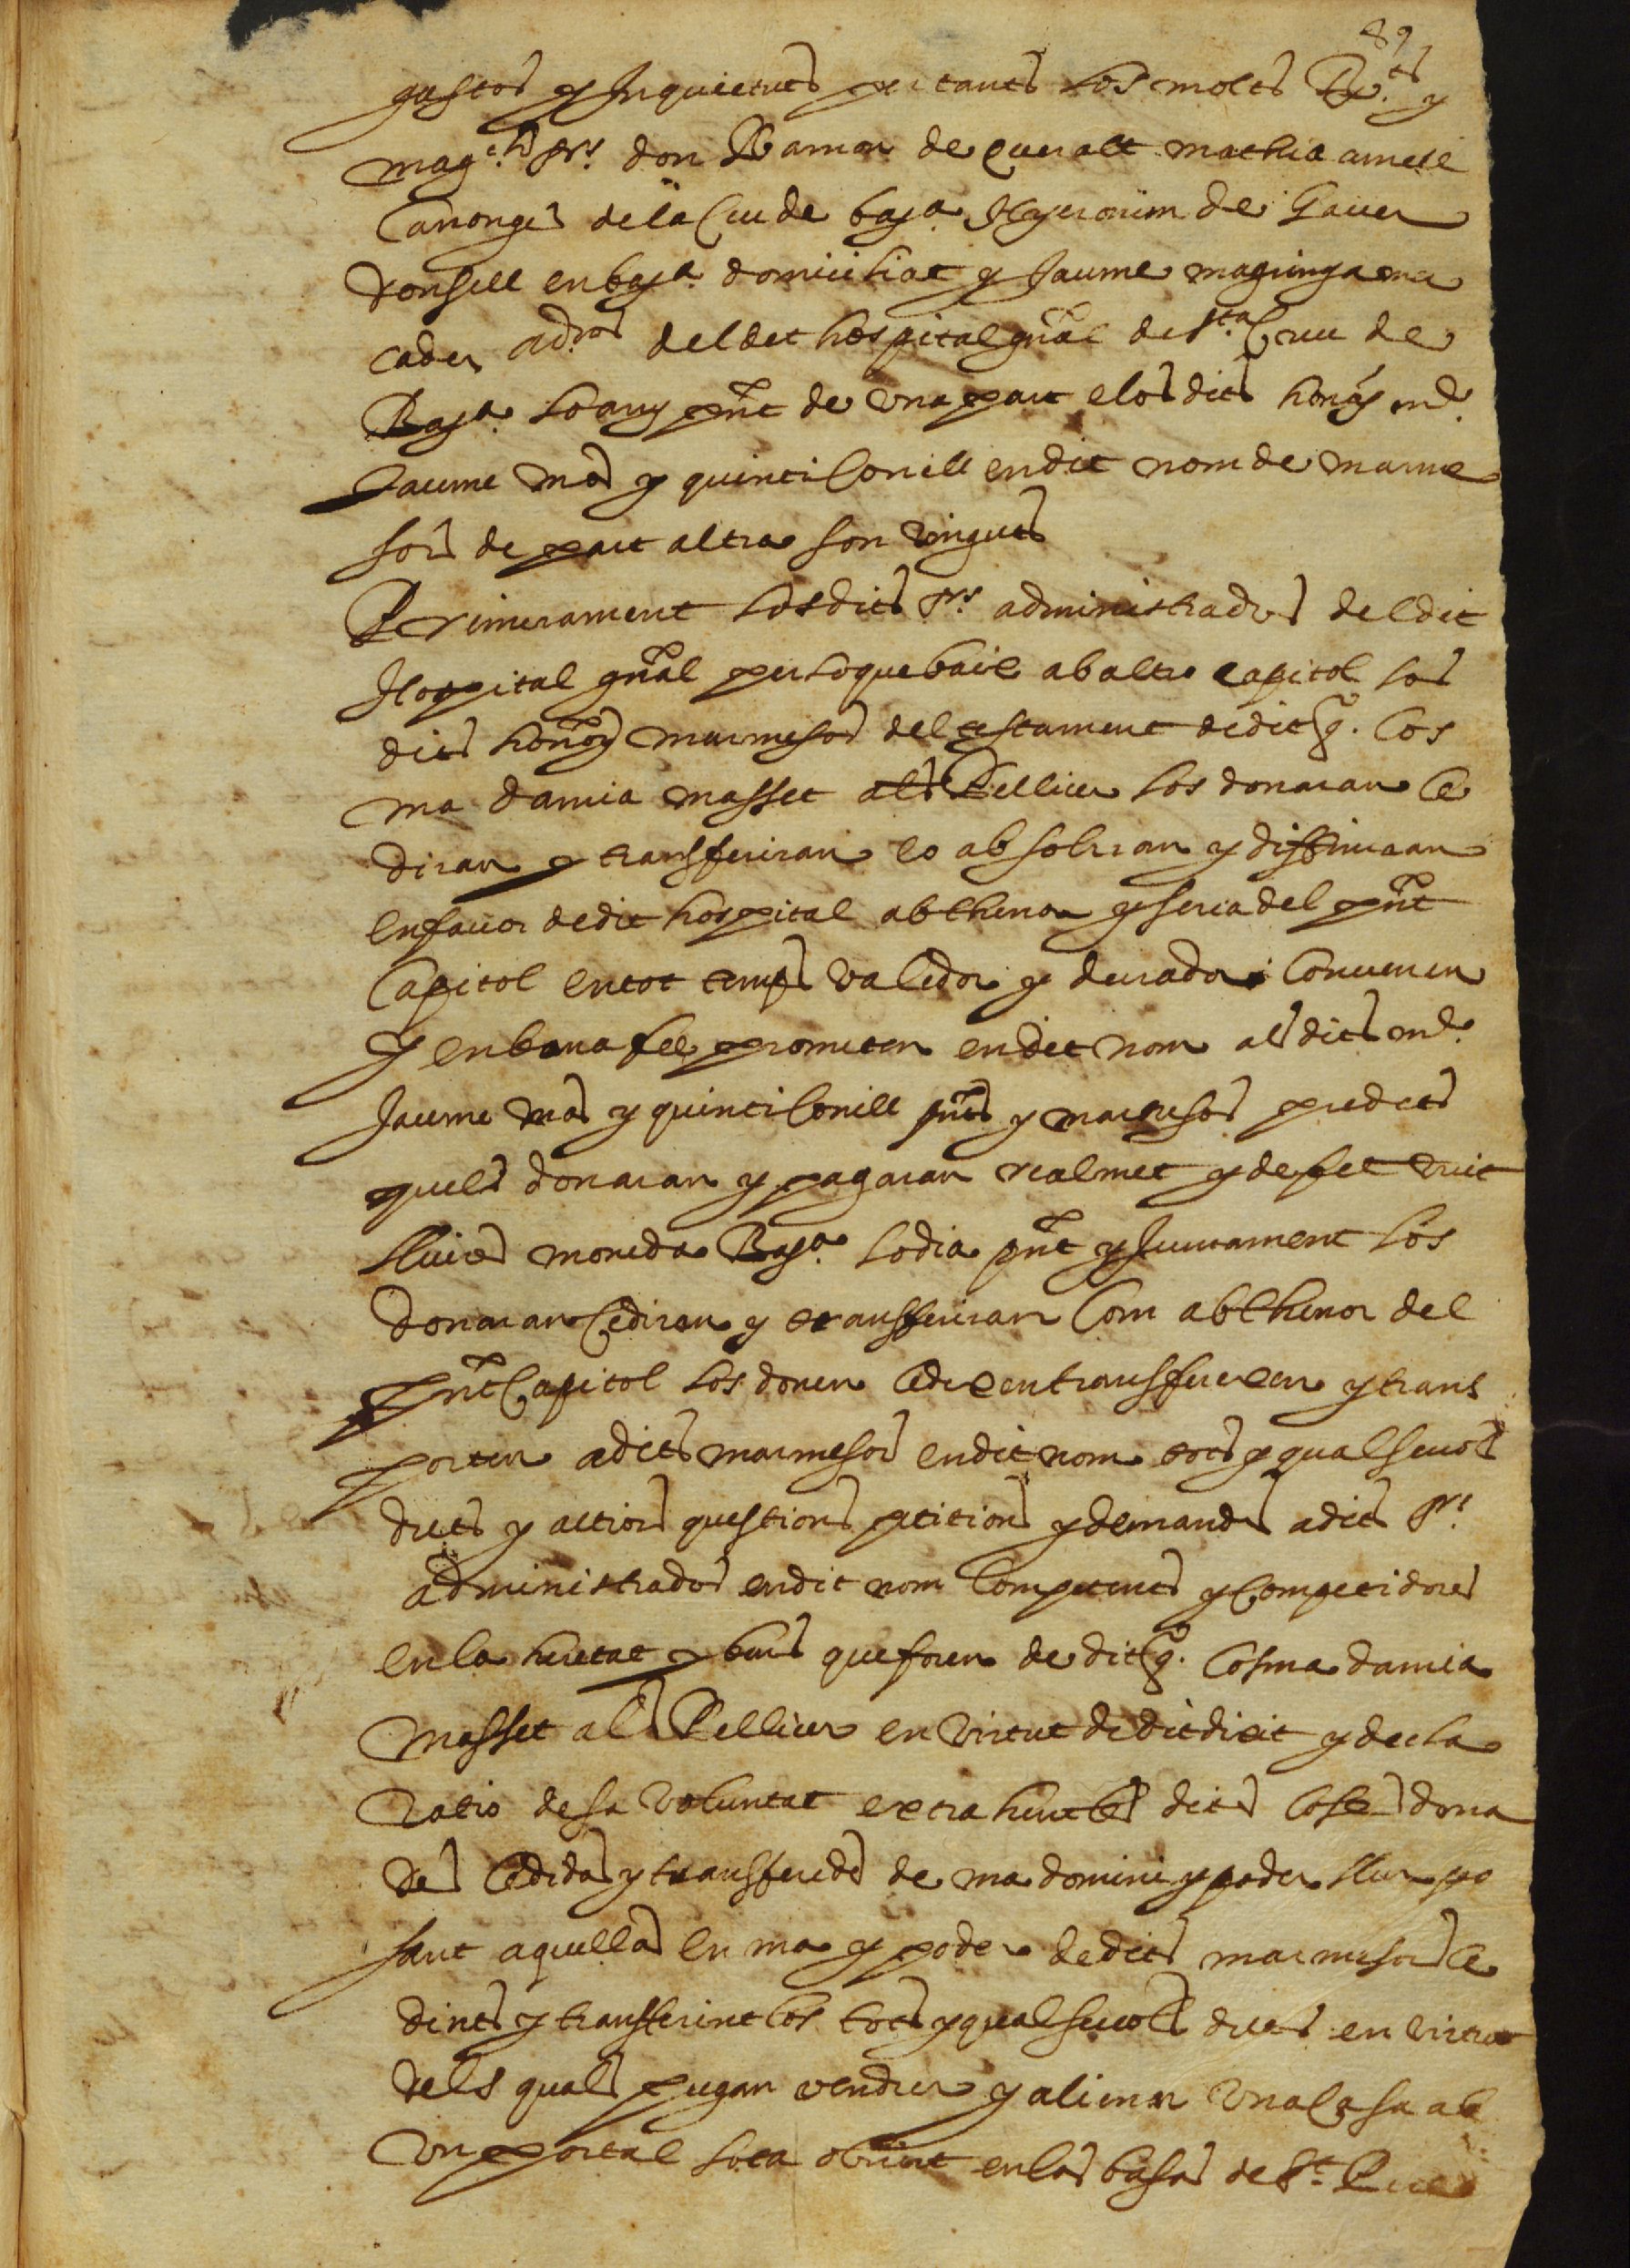 89
gustos y Inquietuts per tants los molts R.ts y
mag.chs srs don Ramon de queralt mathia amell
Canonges de la Ciu de bar.a Hyeronim de Gauer
donsell en bar.a domiciliat y Jaume maginya mer
cader ad.ors del dit hospital gnal de s.ta Creu de
Bar.a lo any pnt de vna part e los dits honors m.e
Jaume mas y quinti Conill en dit nom de marme
sors de part altra son vinguts
Primerament los dits srs administradors del dit
Hospital gnal per lo que baix ab altre capitol los
dits honors marmesors del testament de dit q.º Cos
ma damia masset als Pellicer los donaran Ce
diran y transferiran lo absolran y diffiniran
en fauor de dit hospital ab thenor y seria del pnt
Capitol en tot temps valedor y durador Conuenen
y en bona fee prometen en dit nom als dits m.e
Jaume mas y quinti Conill pnts y marmesors predits
quels donaran y pagaran realmet y de fet vuit
lliures moneda Bar.a lo dia pnt y Juntament los
donaran Cediran y transferiran Com ab thenor del
pnt Capitol los donen Cedexen transferexen y trans
porten a dits marmesors en dit nom tots y qualseuols
drets y actions questions petitions y demandes a dits srs
administradors en dit nom Competents y Competidores
en la heretat y bens que foren de dit q.º Cosma damia
Masset als Pellicer en virtut de dit dixit y decla
ratio de sa voluntat extrahent les dites Coses dona
des Cedidas y transferides de ma domini y poder llur po
sant aquellas en ma y poder de dits marmesors Ce
dints y transferint los tots y qualseuols drets en virtut
dels quals pugan vendrer y alienar vna Casa ab
vn portal sota obrint en las basas de S.t Pere